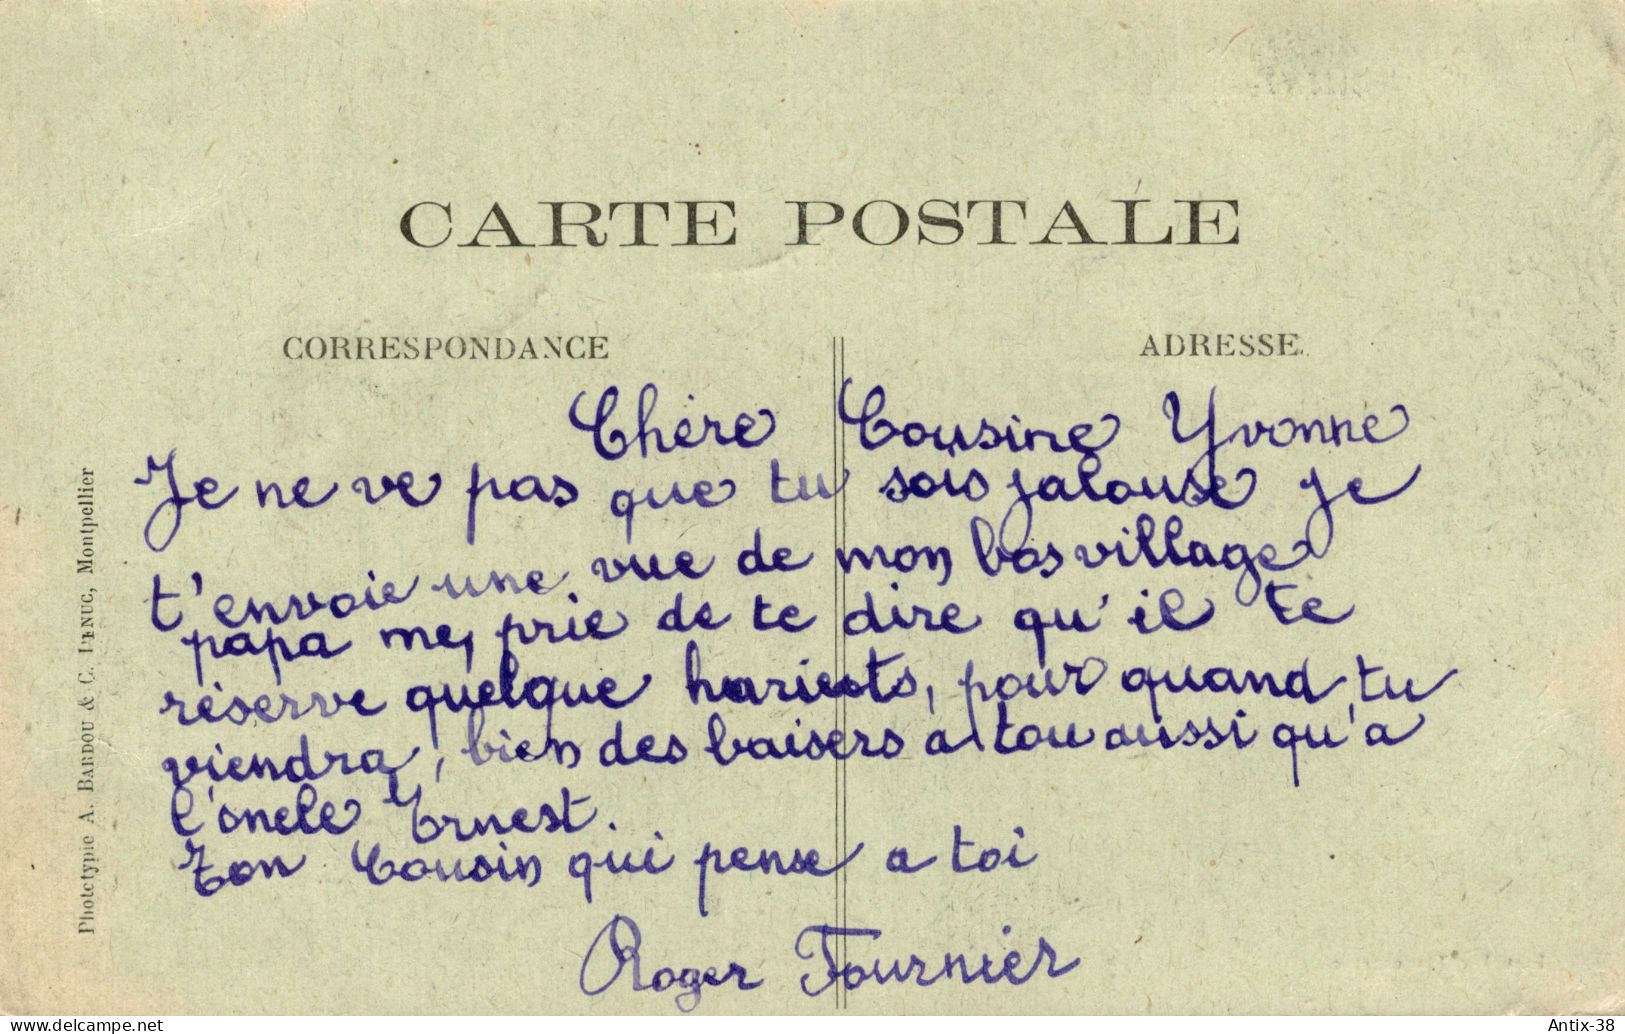 CARTE POSTALE
CORRESPONDANCE
ADRESSE.
Chère Cousine Yvonne
Je ne ve pas que tu sois jalouse je
t'envoie une vue de mon bos village
papa me prie de te dire qu'il te
réserve quelque haricots, pour quand tu
viendra, bien des baisers a tou aussi qu'a
l'oncle Ernest.
Ton Cousin qui pense a toi
Roger Fournier
Phototypie A. BARDOU & C. Montpellier
Antix-38